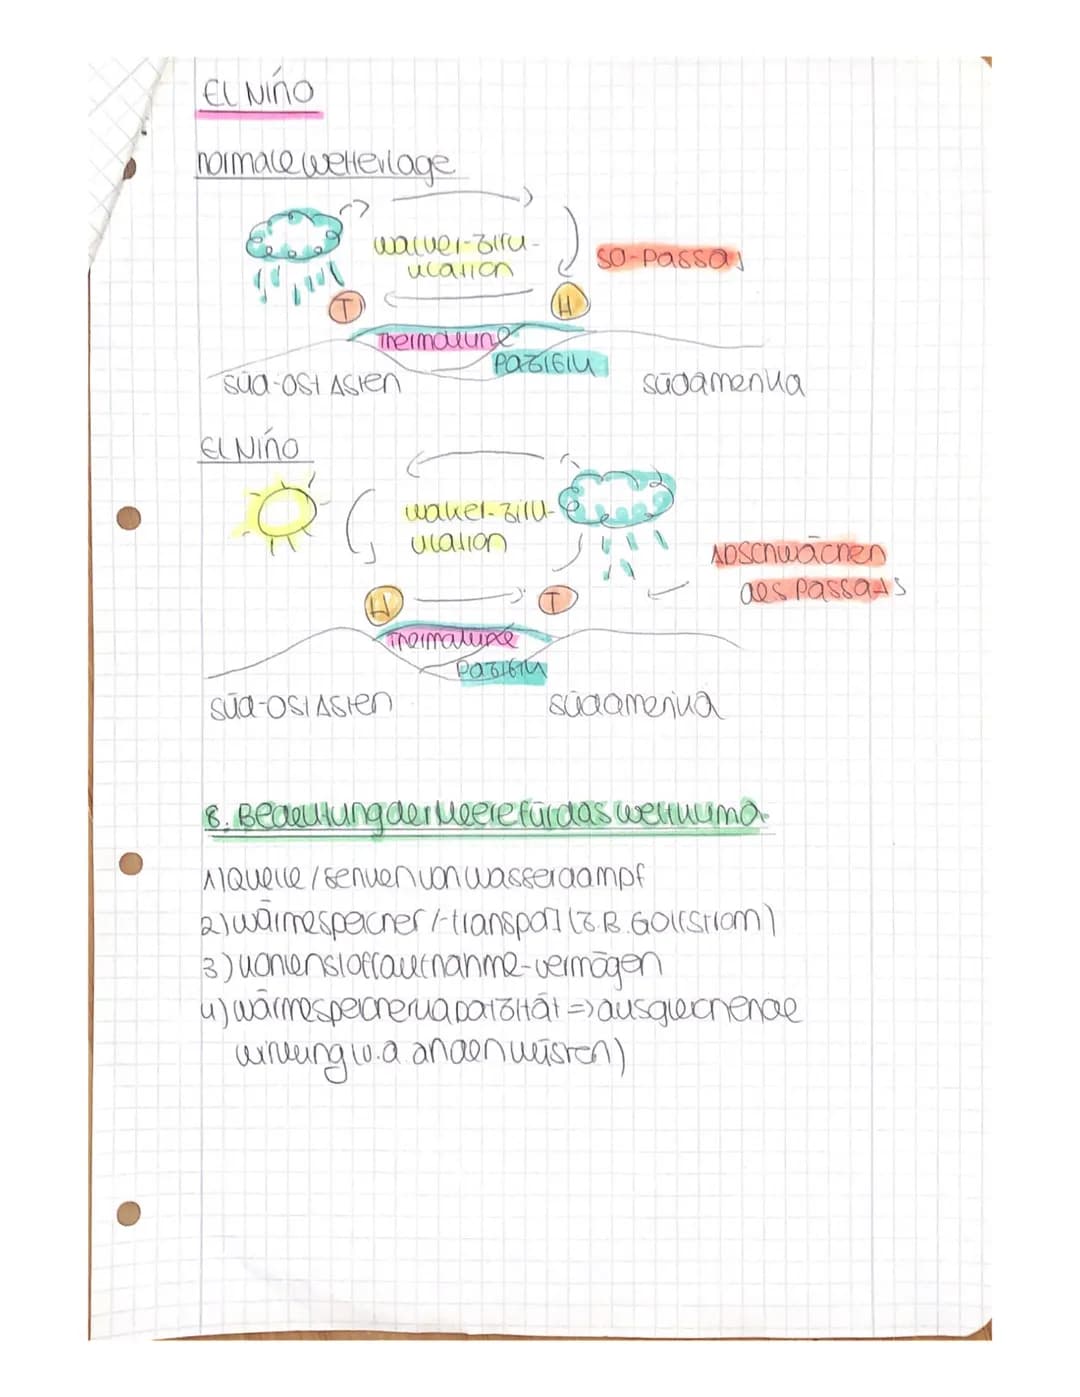 EL NIÑO
normale Wetterlage
Walker-Zirk-
ulation
SO-Passat
T
H
Thermokline
Pazifik
Süd-Ost Asien
Südamerika
EL NIÑO
Walker-Zirk-
ulation
Abschwächen
des Passats
H
T
Thermokline
Pazifik
Süd-Ost Asien
Südamerika
8. Bedeutung der Meere für das Weltklima
1) Quelle / Senken von Wasserdampf
2) Wärmespeicher /-transport (z.B. Golfstrom)
3) Kohlenstoffaufnahme-vermögen
4) Wärmespeicherkapatzität => ausgleichende
Wirkung (v.a an den Küsten)